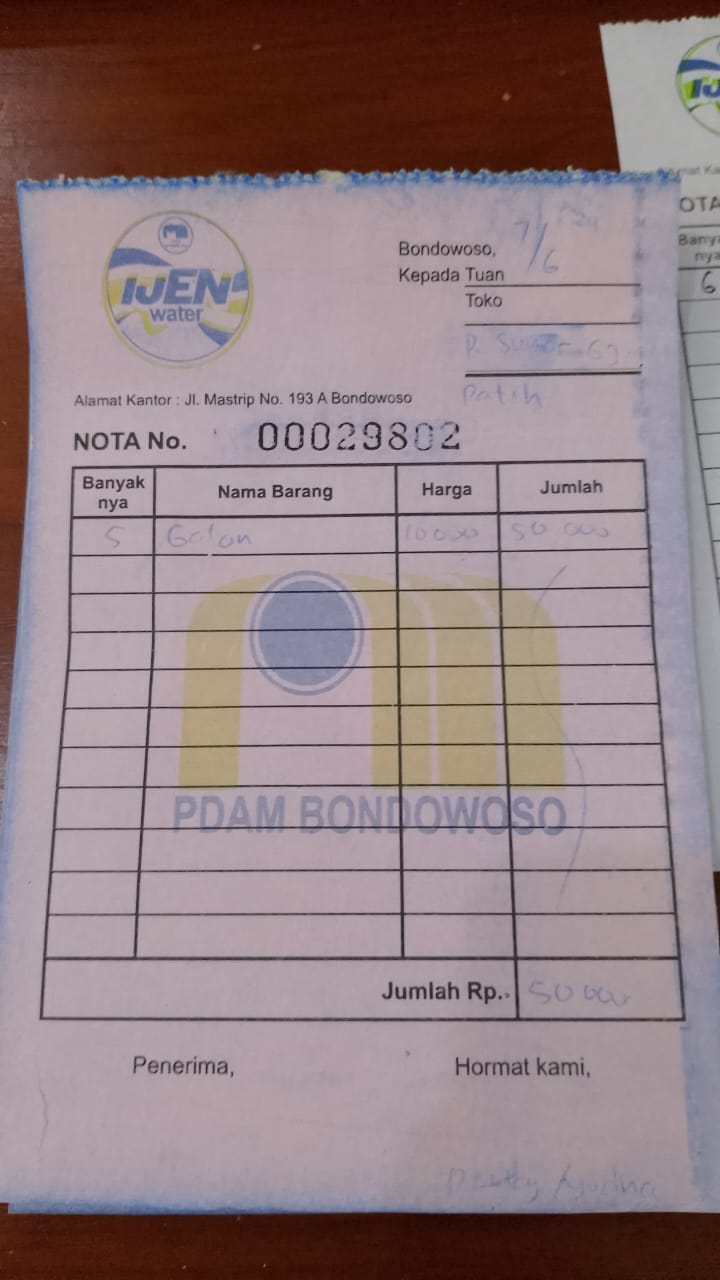 IJEN
water
Bondowoso, 7/6
Kepada Tuan
Toko
P. Suwar Gg.
Patih
Alamat Kantor : Jl. Mastrip No. 193 A Bondowoso
NOTA No. 00029802
Banyak nya Nama Barang Harga Jumlah
5 Galon 10 000 50 000
PDAM BONDOWOSO
Jumlah Rp. 50 000
Penerima, Hormat kami,
IJ
OTA
Banya
nya
6